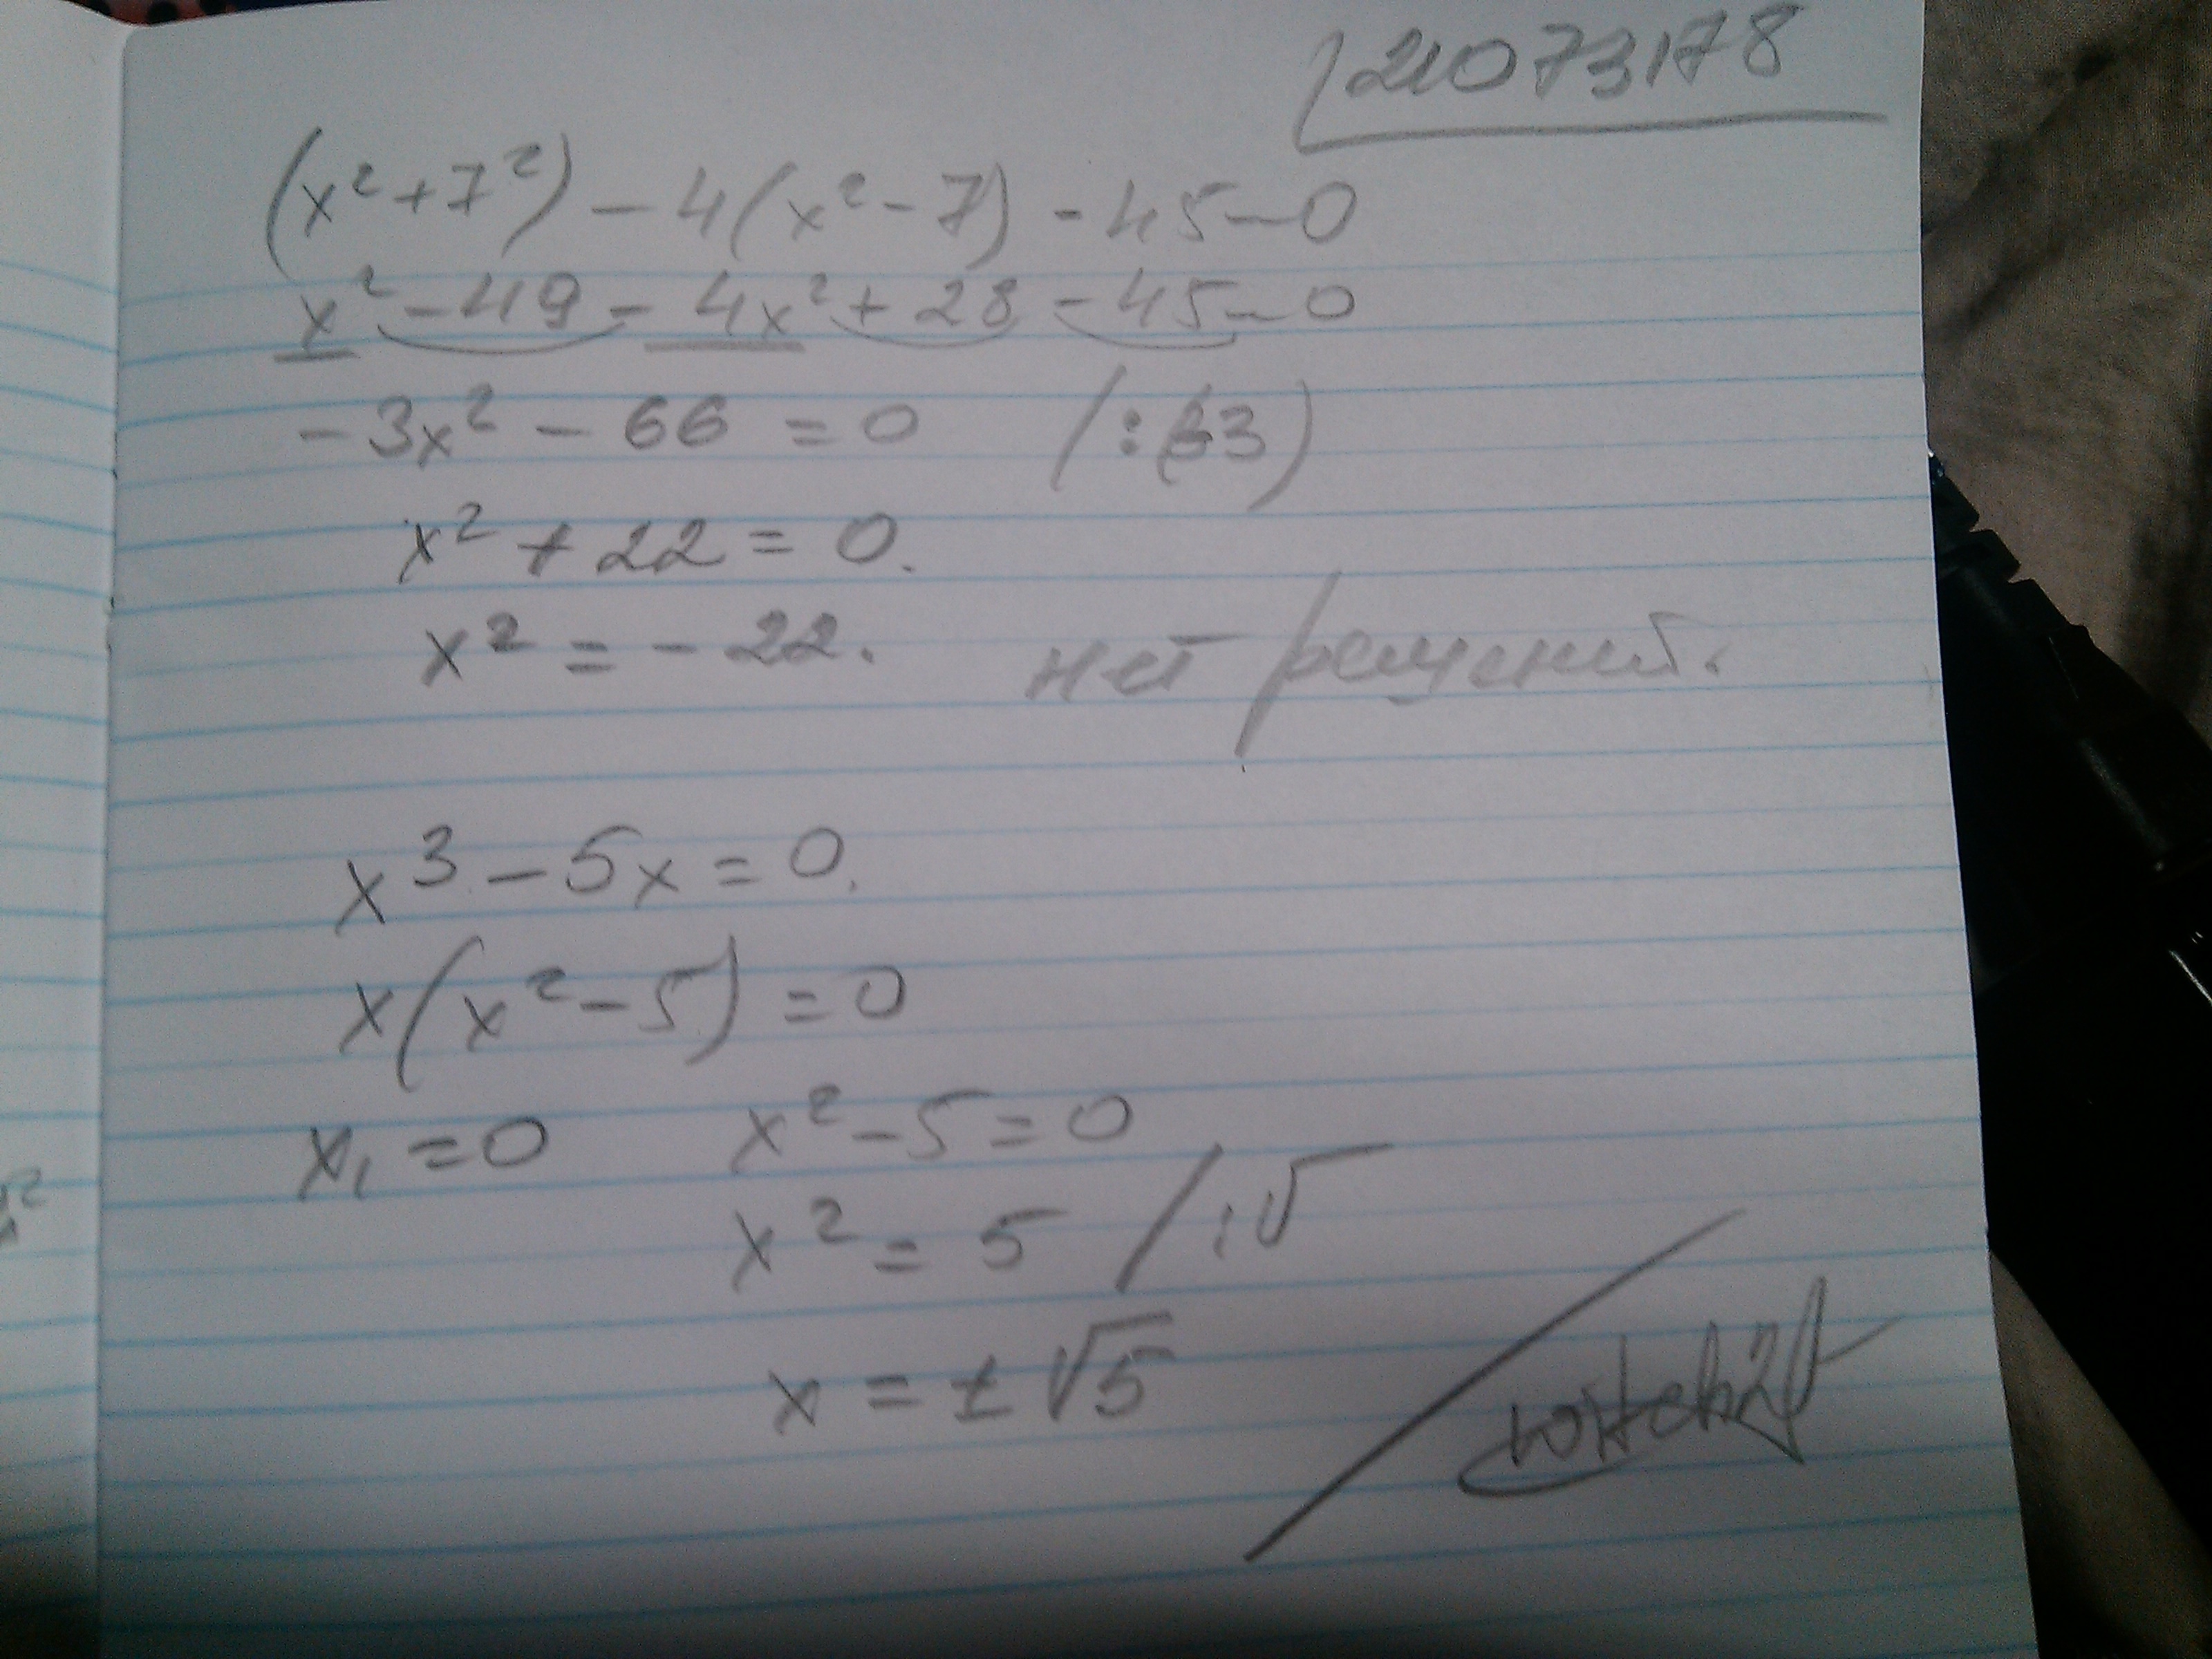 21073178
(x²+7²) - 4(x²-7) - 45 - 0
x² - 49 - 4x² + 28 - 45 - 0
-3x² - 66 = 0 /:(-3)
x² + 22 = 0.
x² = -22. нет решений.
x³ - 5x = 0.
x(x² - 5) = 0
x₁ = 0 x² - 5 = 0
x² = 5 /:√
x = ±√5